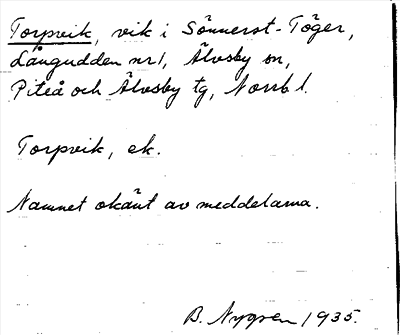 Torpvik, vik i Sönnerst-Töger,
Långudden nr 1, Älvsby sn,
Piteå och Älvsby tg, Norrb l.
Torpvik, ek.
Namnet okänt av meddelarna.
B. Nygren 1935.